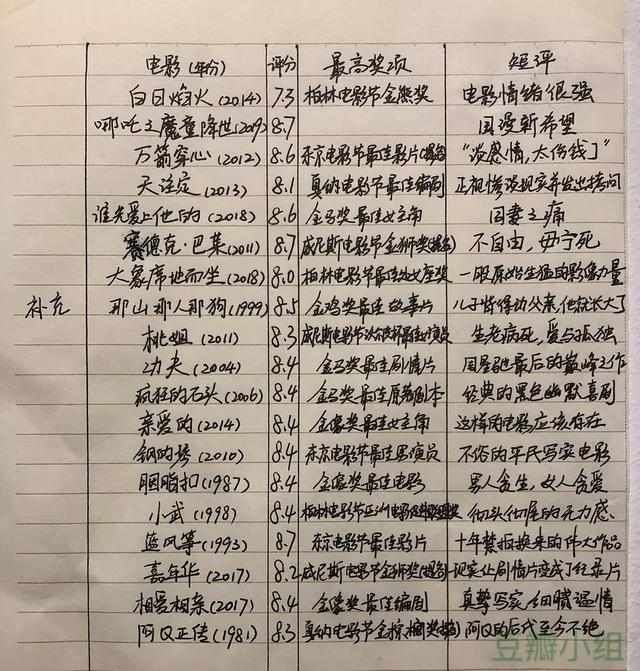 电影(年份) 评分 最高奖项 短评
白日焰火(2014) 7.3 柏林电影节金熊奖 电影情绪很强
哪吒之魔童降世(2019) 8.7 国漫新希望
万箭穿心(2012) 8.6 东京电影节最佳影片(提名) “谈感情,太伤钱了”
天注定(2013) 8.1 戛纳电影节最佳编剧 正视惨淡现实并发出拷问
谁先爱上他的(2018) 8.6 金马奖最佳女主角 同妻之痛
赛德克·巴莱(2011) 8.7 威尼斯电影节金狮奖(提名) 不自由,毋宁死
大象席地而坐(2018) 8.0 柏林电影节最佳处女座奖 一股原始生猛的影像力量
补充 那山那人那狗(1999) 8.5 金鸡奖最佳故事片 儿子背得动父亲,他就长大了
桃姐(2011) 8.3 威尼斯电影节沃尔皮杯最佳女演员 生老病死,爱与孤独
功夫(2004) 8.4 金马奖最佳剧情片 周星驰最后的巅峰之作
疯狂的石头(2006) 8.4 金马奖最佳原著剧本 经典的黑色幽默喜剧
亲爱的(2014) 8.4 金像奖最佳女主角 这样的电影应该存在
钢的琴(2010) 8.4 东京电影节最佳男演员 不俗的平民写实电影
胭脂扣(1987) 8.4 金像奖最佳电影 男人贪生,女人贪爱
小武(1998) 8.4 柏林电影节亚洲电影 彻头彻尾的无力感
蓝风筝(1993) 8.7 东京电影节最佳影片 十年禁拍换来的伟大作品
嘉年华(2017) 8.2 威尼斯电影节金狮奖(提名) 现实让剧情片变成了纪录片
相爱相亲(2017) 8.4 金像奖最佳编剧 真挚写实,细腻温情
阿Q正传(1981) 8.3 戛纳电影节金棕榈奖(提名) 阿Q的后代至今不绝
豆瓣小组